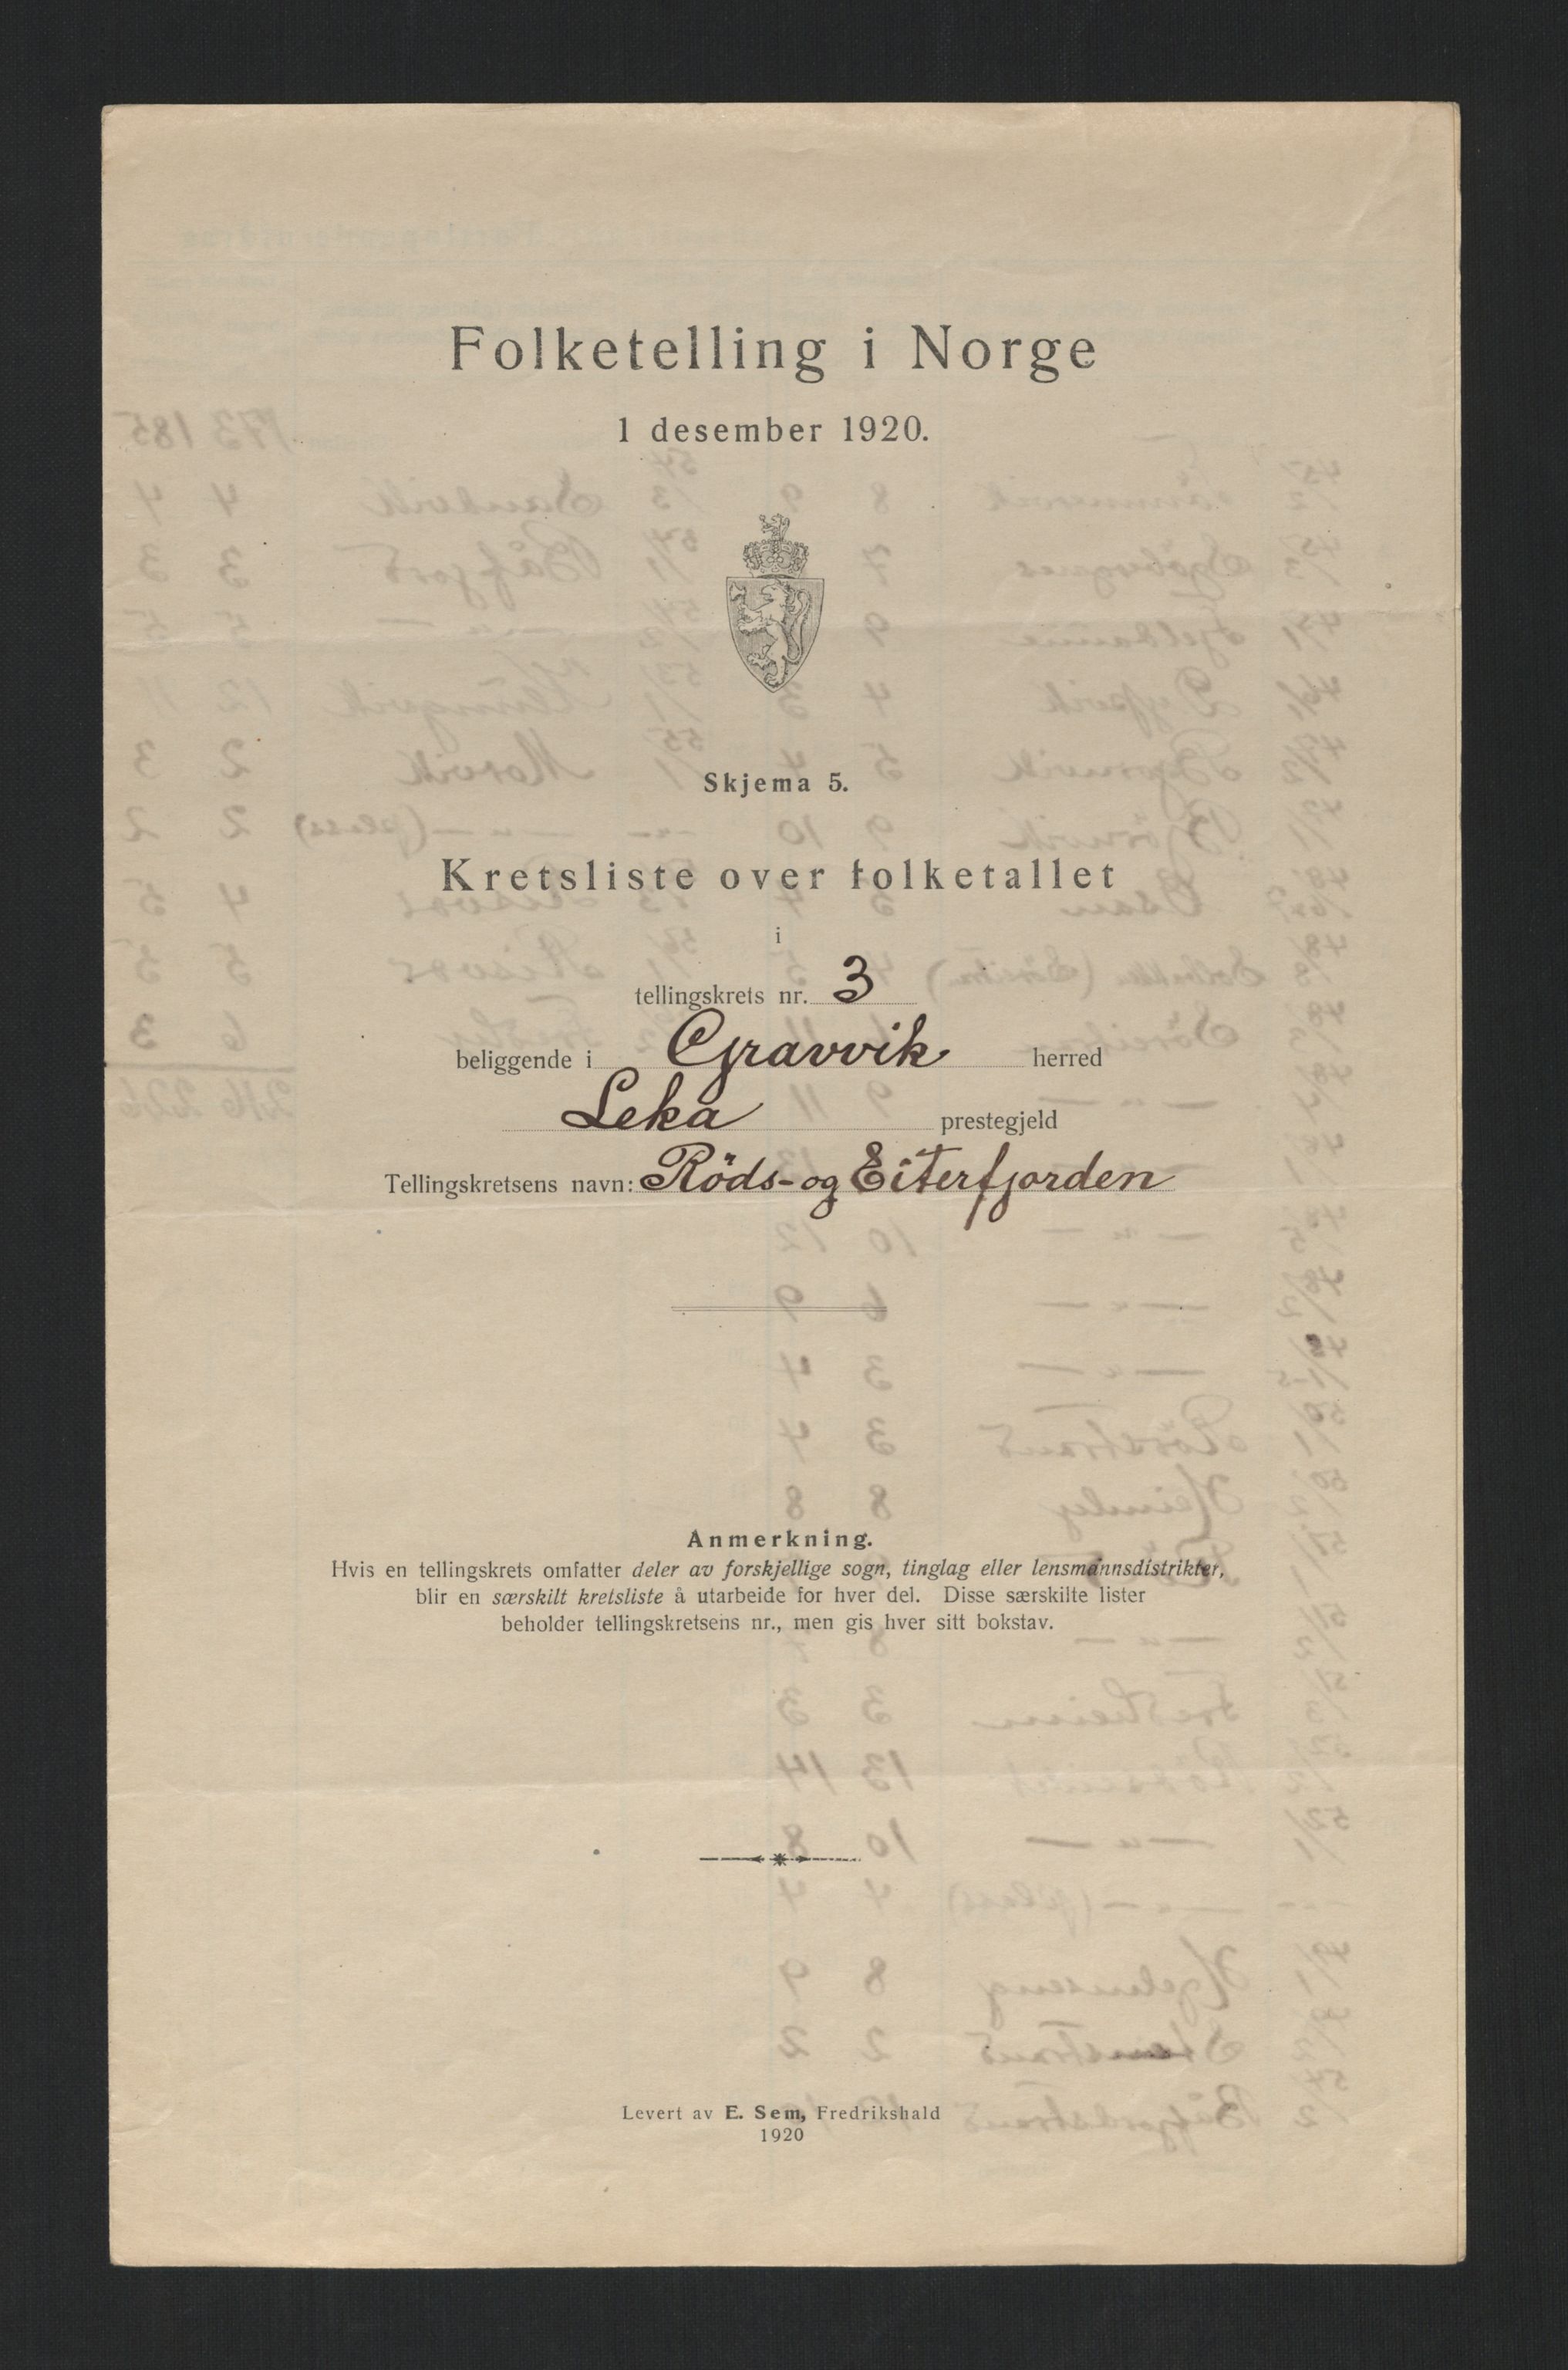 Folketelling i Norge
1 desember 1920.
Skjema 5.
Kretsliste over folketallet
i
tellingskrets nr. 3
beliggende i Gravvik herred
Leka prestegjeld
Tellingskretsens navn: Röds- og Eiterfjorden
Anmerkning.
Hvis en tellingskrets omfatter deler av forskjellige sogn, tinglag eller lensmannsdistrikter,
blir en særskilt kretsliste å utarbeide for hver del. Disse særskilte lister
beholder tellingskretsens nr., men gis hver sitt bokstav.
Levert av E. Sem, Fredrikshald
1920